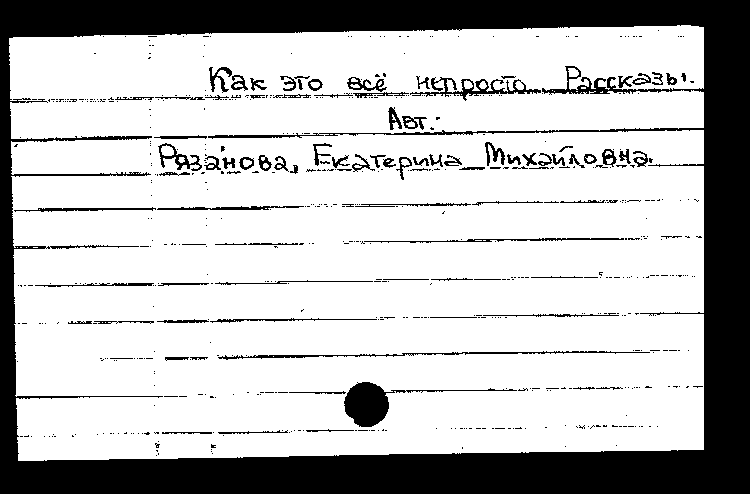 Как это всё непросто. Рассказы.
Авт.:
Рязанова, Екатерина Михайловна.